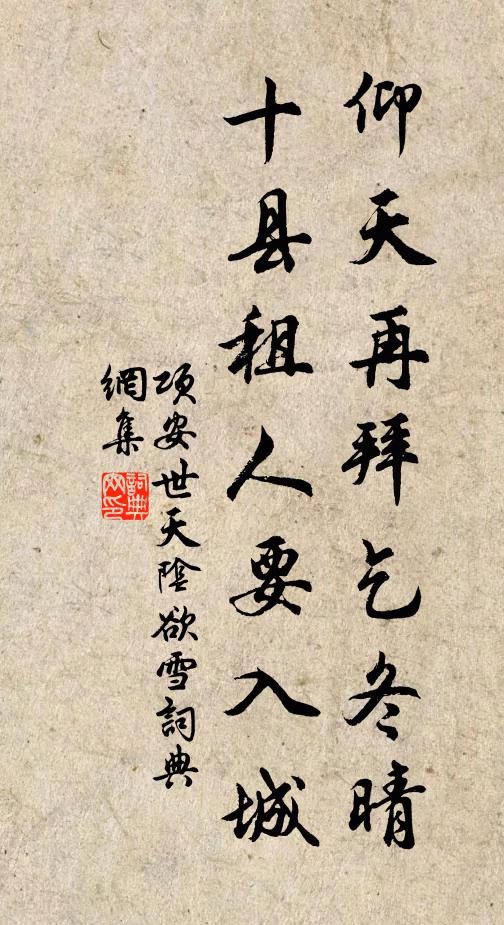 仰天再拜乞冬晴
十县租人要入城
项安世天陰欲雪詞典
網集
詞典
網印